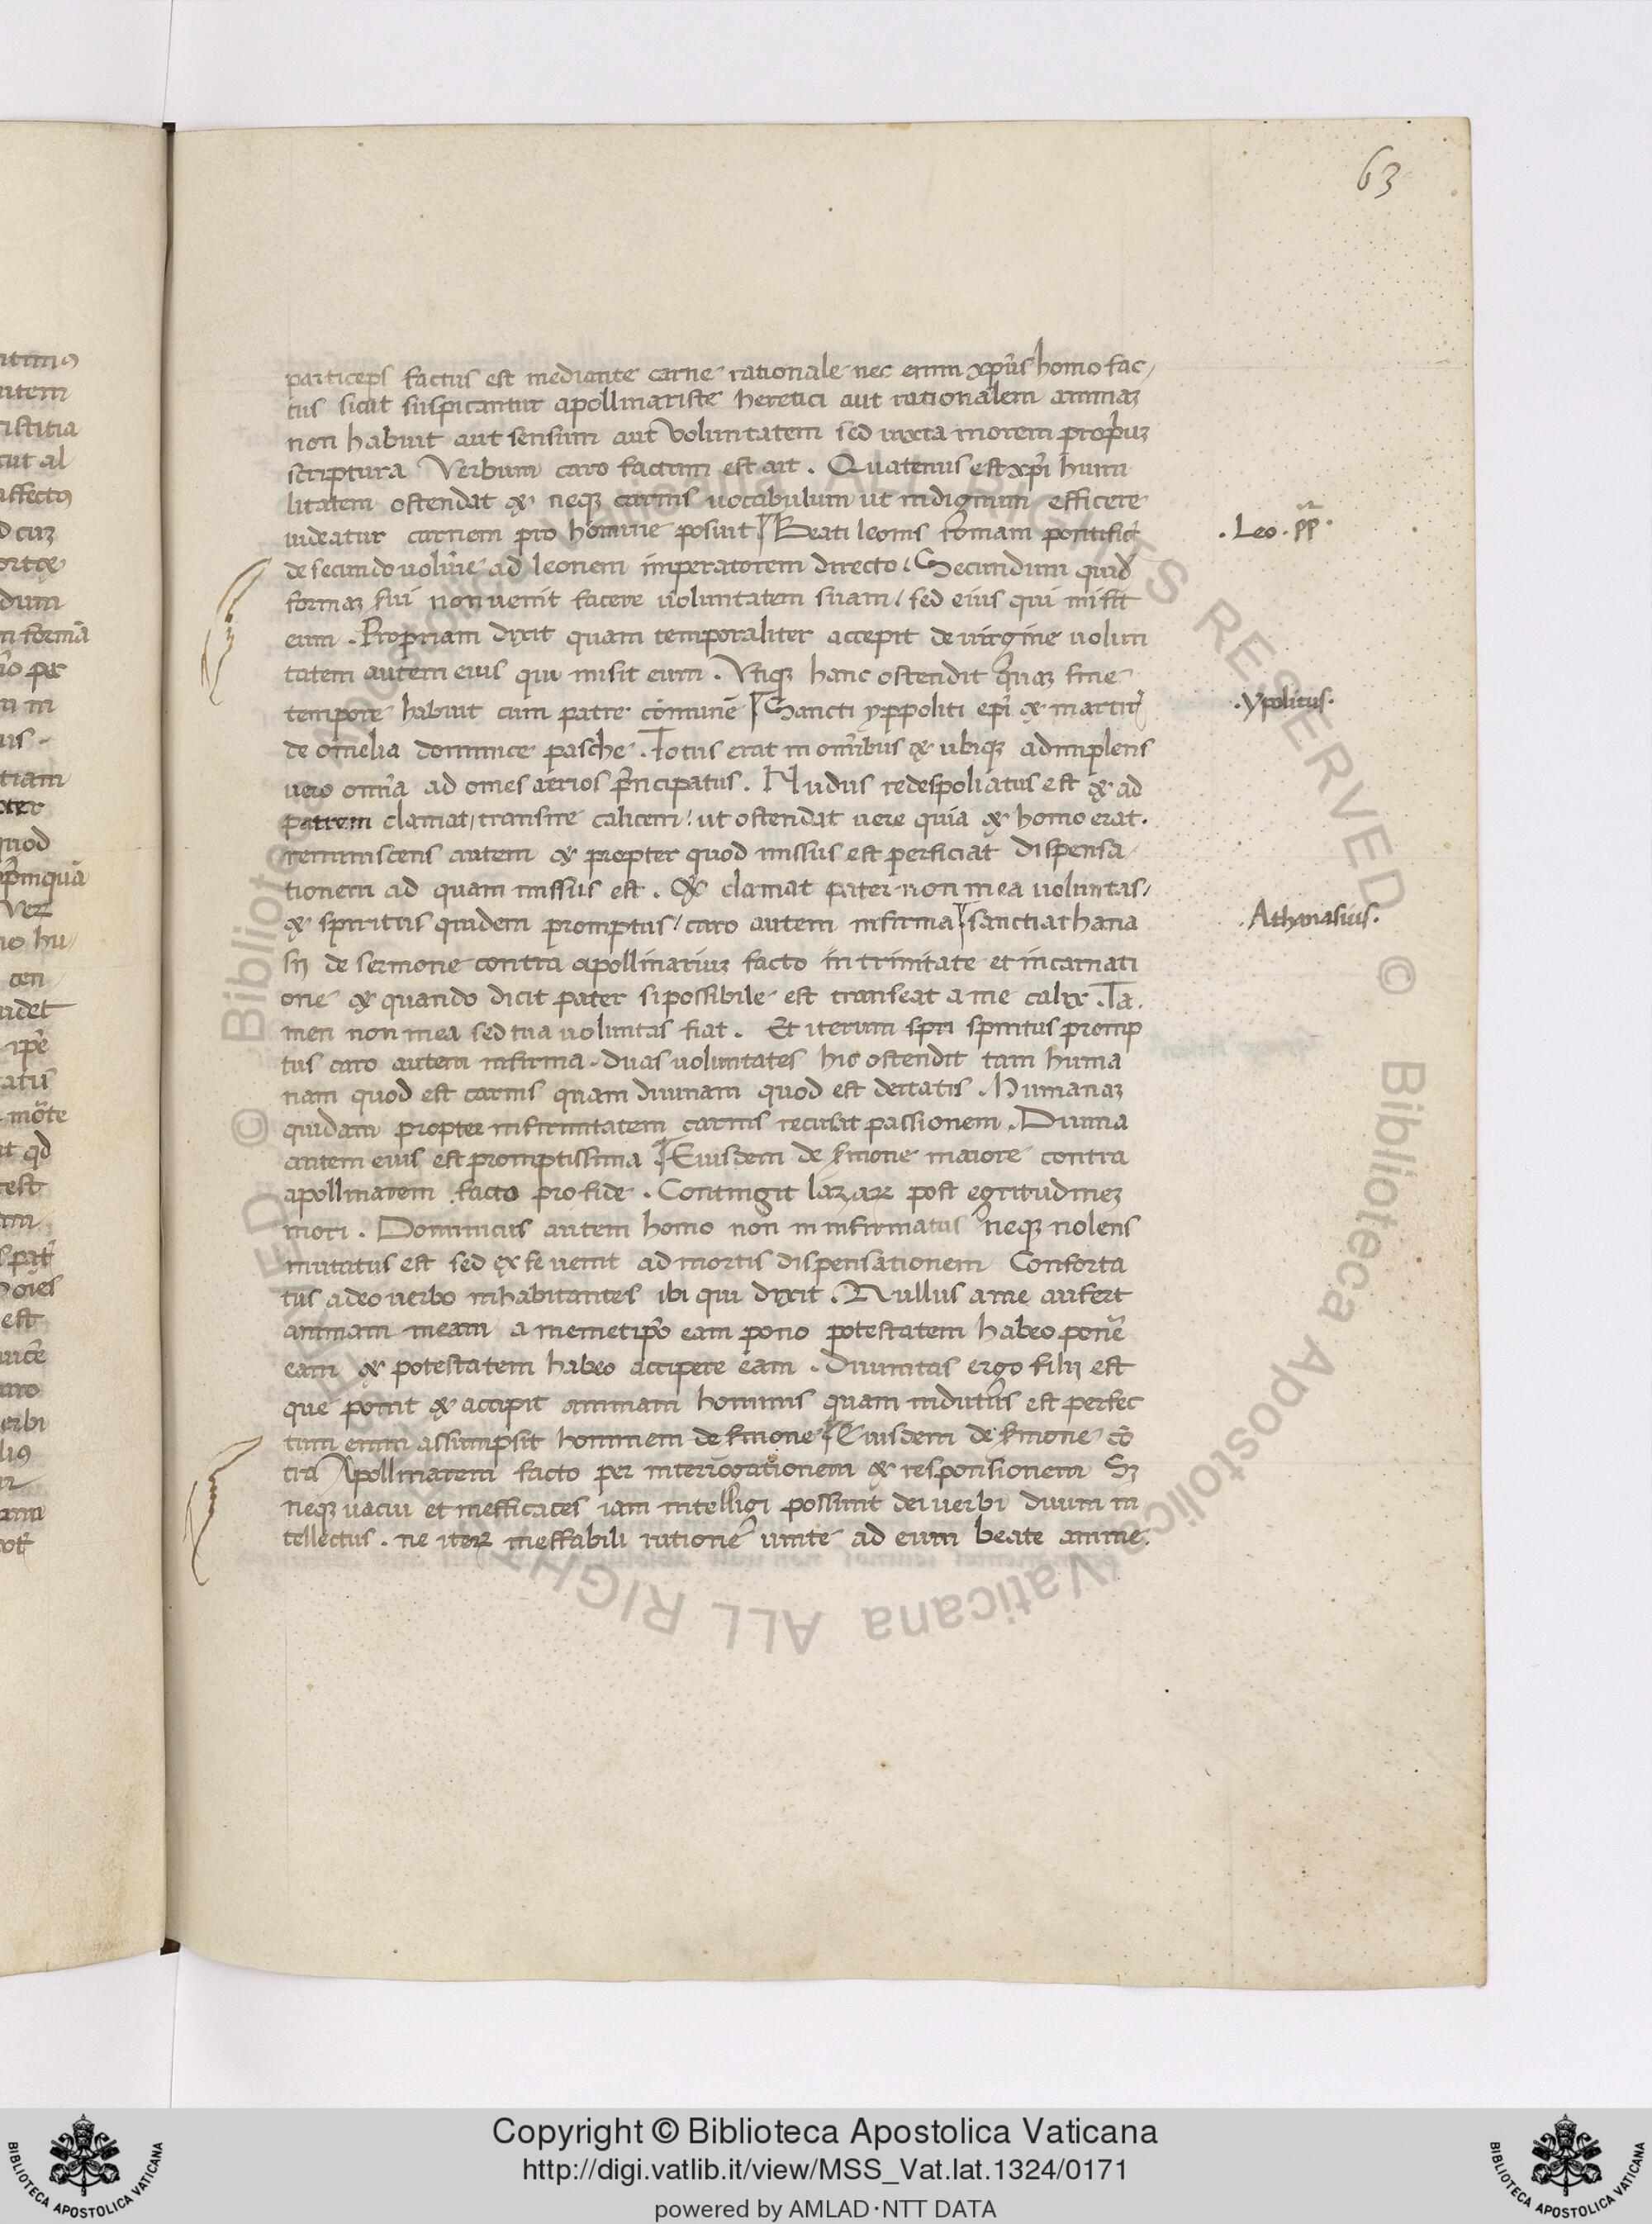 63
particeps factus est mediante carne rationale nec enim xp̄us homo fac/
tus sicut suspicantur apollinariste heretici aut rationalem animaȝ
non habuit aut sensum aut voluntatem sed iuxta morem propriuȝ
scriptura Verbum caro factum est ait . Quatenus est xp̄i humi
litatem ostendat & neqȝ carnis vocabulum ut indignum efficere
uideatur carnem pro homine posuit Beati leonis romam pontific̄
. Leo . pp̄ .
de secundo volūie ad leonem imperatorem directo / Secundum quid
formaȝ sui non uenit facere uoluntatem suam / sed eius qui misit
eum . Propriam dixit quam temporaliter accepit de virgine uolun
tatem autem eius qui misit eum . Vtiqȝ hanc ostendit quaȝ sine
tempore habuit cum patre cōmune Sancti yppoliti ep̄i & martir̄
. Ypolitus .
de omelia dominice pasche . Totus erat in om̄ibus & ubiqȝ adimplens
uero om̄ia ad om̄es aerios p̄ncipatus . Nudus redespoliatus est & ad
patrem clamat / transire calicem / ut ostendat vere quia & homo erat .
reminiscens autem & propter quod missus est perficiat dispensa
tionem ad quam missus est . & clamat pater non mea voluntas /
& spiritus quidem promptus / caro autem infirma sancti athana
. Athanasius .
sij de sermone contra apollinariuȝ facto in trinitate et incarnati
one & quando dicit pater si possibile est transeat a me calix . Ta .
men non mea sed tua voluntas fiat . Et iterum spri spiritus promp
tus caro autem infirma . duas voluntates hic ostendit tam huma
nam quod est carnis quam diuinam quod est deitatis . Humanaȝ
quidam propter infirmitatem carnis recusat passionem . Diuina
autem eius est promptissima Eiusdem de s̄mone maiore contra
apollinarem facto pro fide . Contingit lazarꝝ post egritudineȝ
mori . Dominicus autem homo non in infirmatus neqȝ nolens
mutatus est sed ex se uenit ad mortis dispensationem Conforta
tus a deo verbo inhabitantes ibi qui dixit . Nullus a me aufert
animam meam a memetip̄o eam pono potestatem habeo ponē
eam & potestatem habeo accipere eam . diuinitas ergo filij est
que ponit & accipit animam hominis quam indutus est perfec
tum enim assumpsit hominem de s̄mone Eiusdem de s̄mone cō
tra Apollinarem facto per interrogationem & responsionem Sȝ
neqȝ vacui et inefficaces iam intelligi possunt dei verbi diuini in
tellectus . ne iterꝝ ineffabili ratione unite ad eum beate anime .
Copyright © Biblioteca Apostolica Vaticana
http://digi.vatlib.it/view/MSS_Vat.lat.1324/0171
powered by AMLAD·NTT DATA